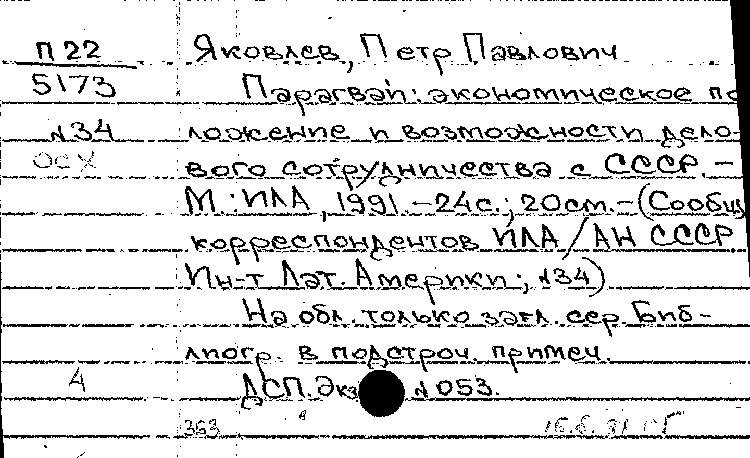 П 22 Яковлев, Петр Павлович
5173 Парагвай: экономическое по
№34 ложение и возможности дело-
ОСХ вого сотрудничества с СССР. –
М.: ИЛА, 1991. – 24с.; 20см. – (Сообщ
корреспондентов ИЛА / АН СССР
Ин-т Лат. Америки; №34)
На обл. только загл. сер. Биб-
лиогр. в подстроч. примеч.
4 ДСП. Экз №053.
363